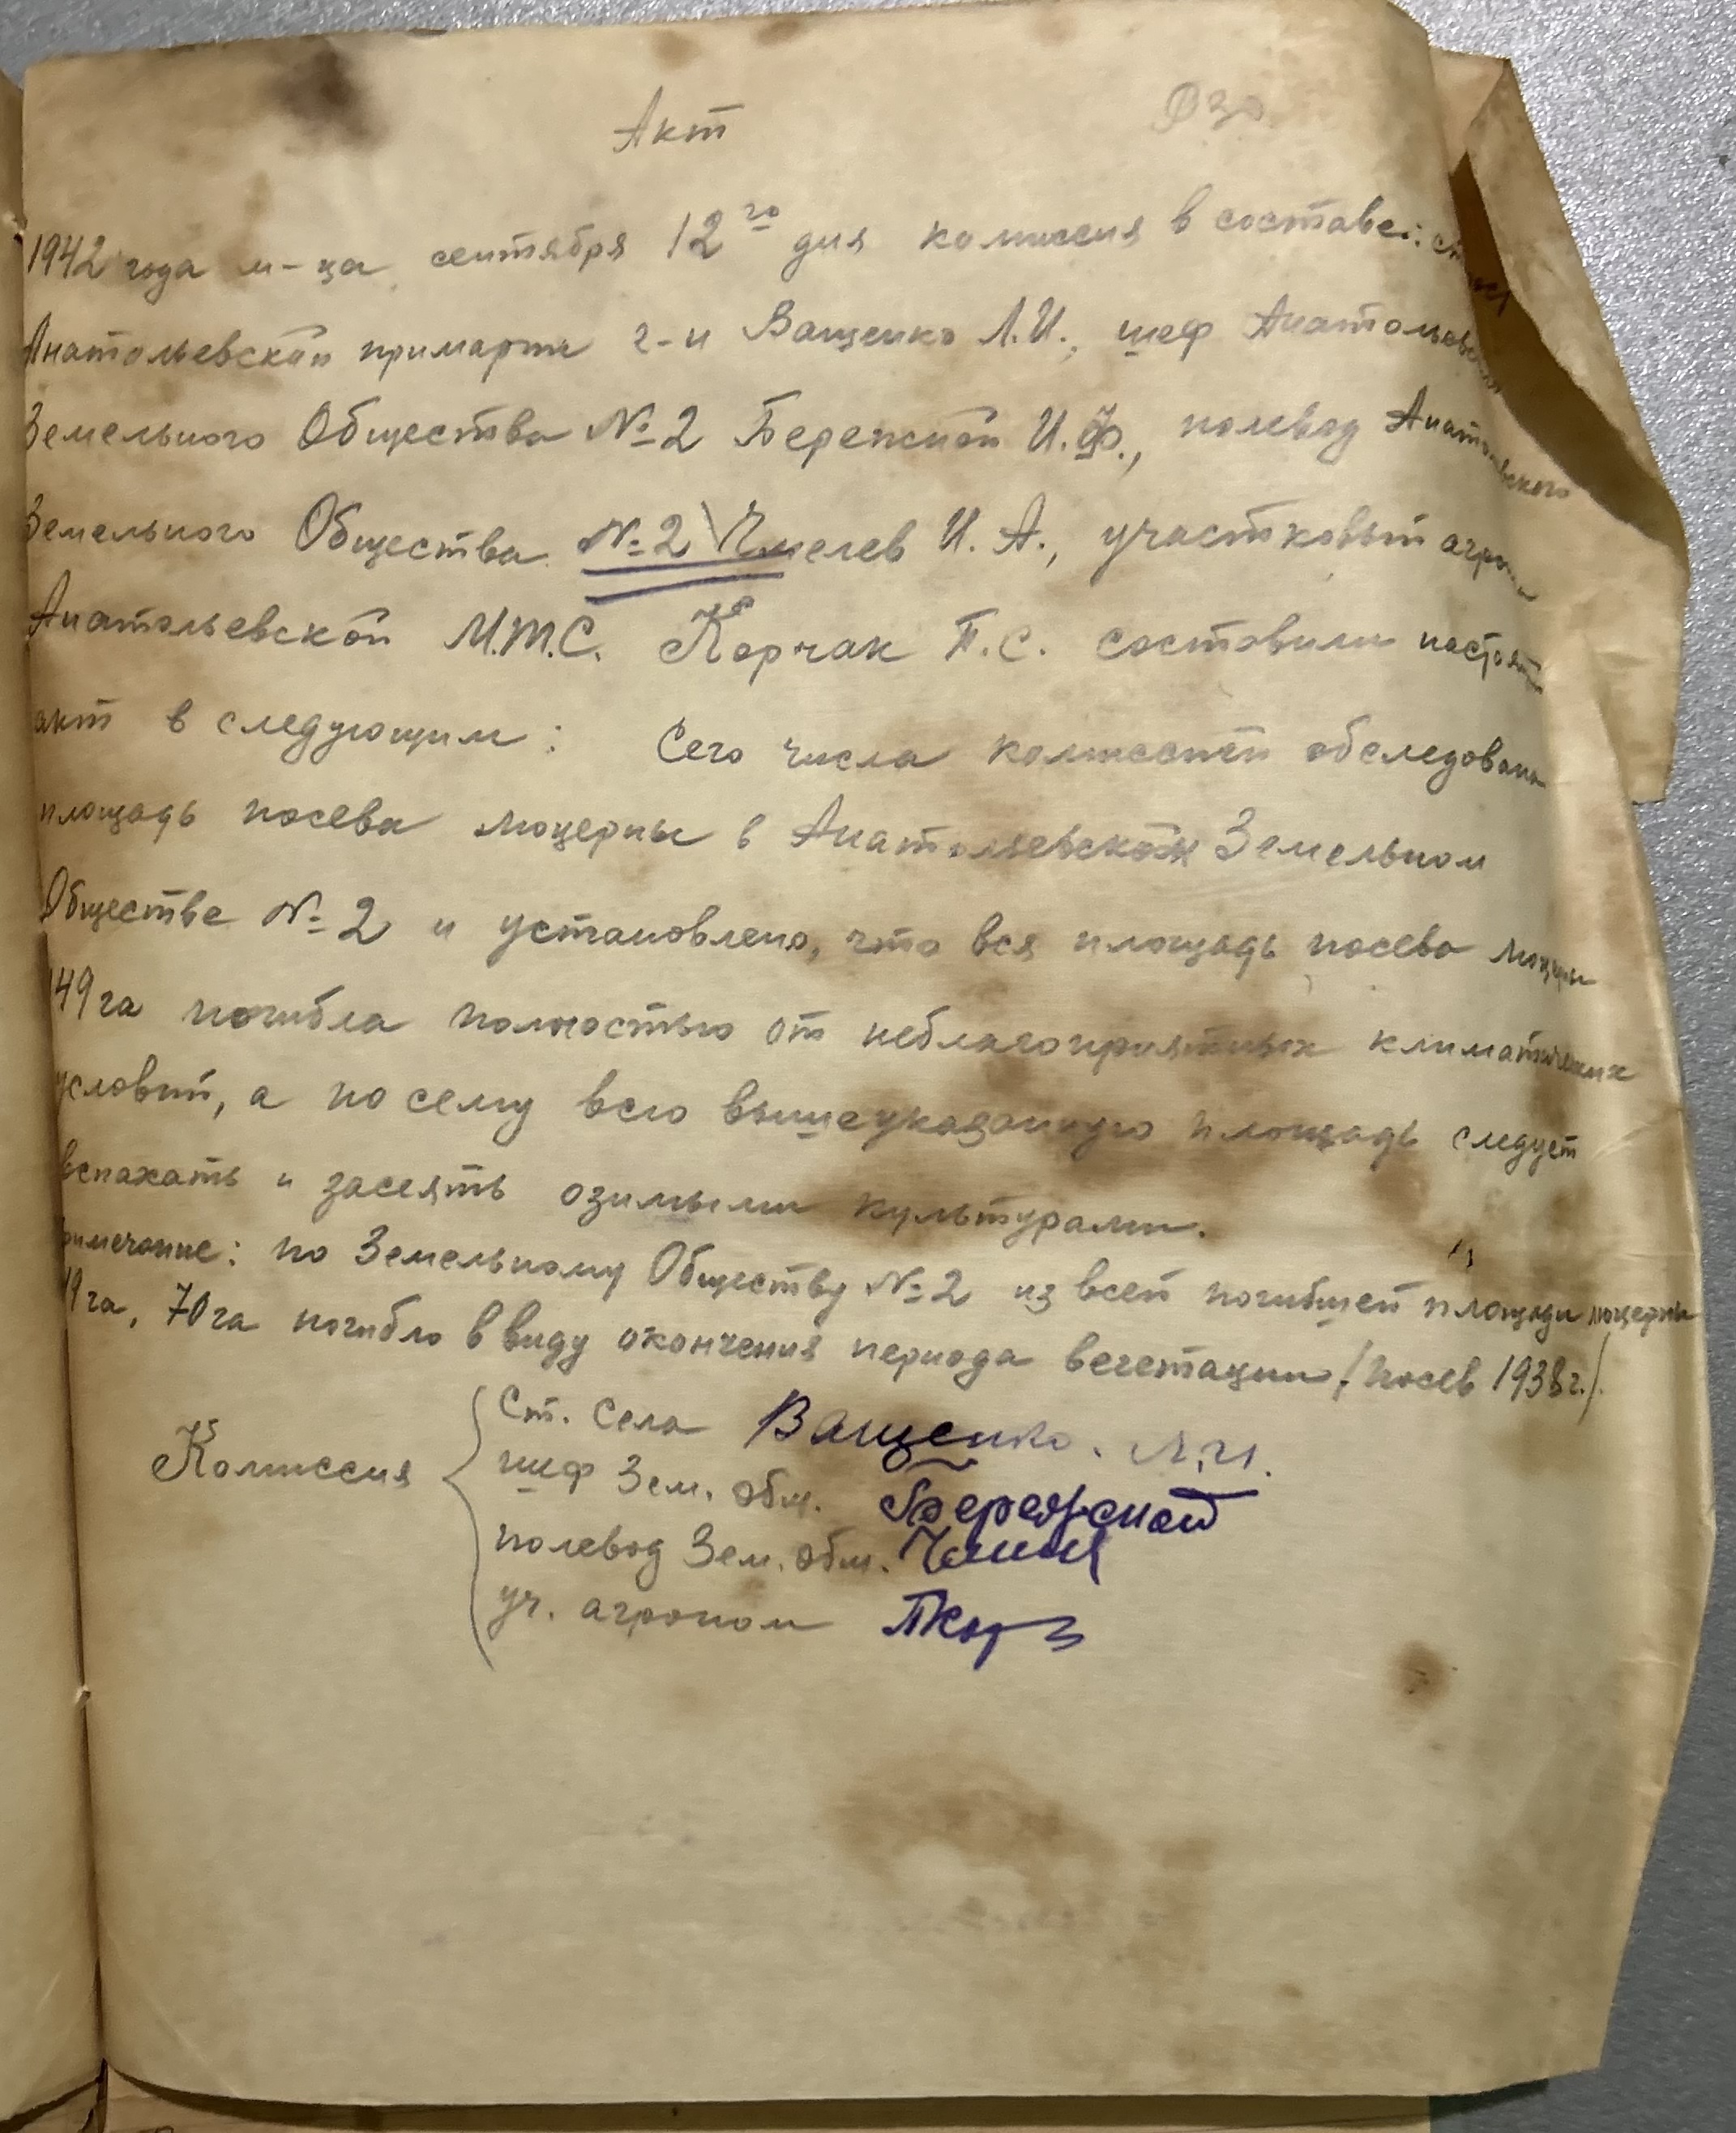 Акт
1942 года м-ца сентября 12го дня комиссия в составе:
Анатольевской примарии г-н Ващенко Л.И., шеф Анатольевского
Земельного Общества №2 Бережной И.Ф., полевод Анатольевского
Земельного Общества №2 Чмелев И.А., участковый агроном
Анатольевской М.Т.С. Корчак П.С. составили настоящий
акт в следующим: Сего числа комиссией обследована
площадь посева люцерны в Анатольевском Земельном
Обществе №2 и установлено, что вся площадь посева люцерны
149 га погибла полностью от неблагоприятных климатических
условий, а по сему всю вышеуказанную площадь следует
вспахать и засеять озимыми культурами.
Примечание: по Земельному Обществу №2 из всей погибшей площади люцерны
га, 70 га погибло в виду окончения периода вегетации /посев 1938 г./.
Комиссия
Ст. села Ващенко. Л.И.
шеф Зем. общ. Бережной
полевод Зем. общ.
уч. агроном ПКорч